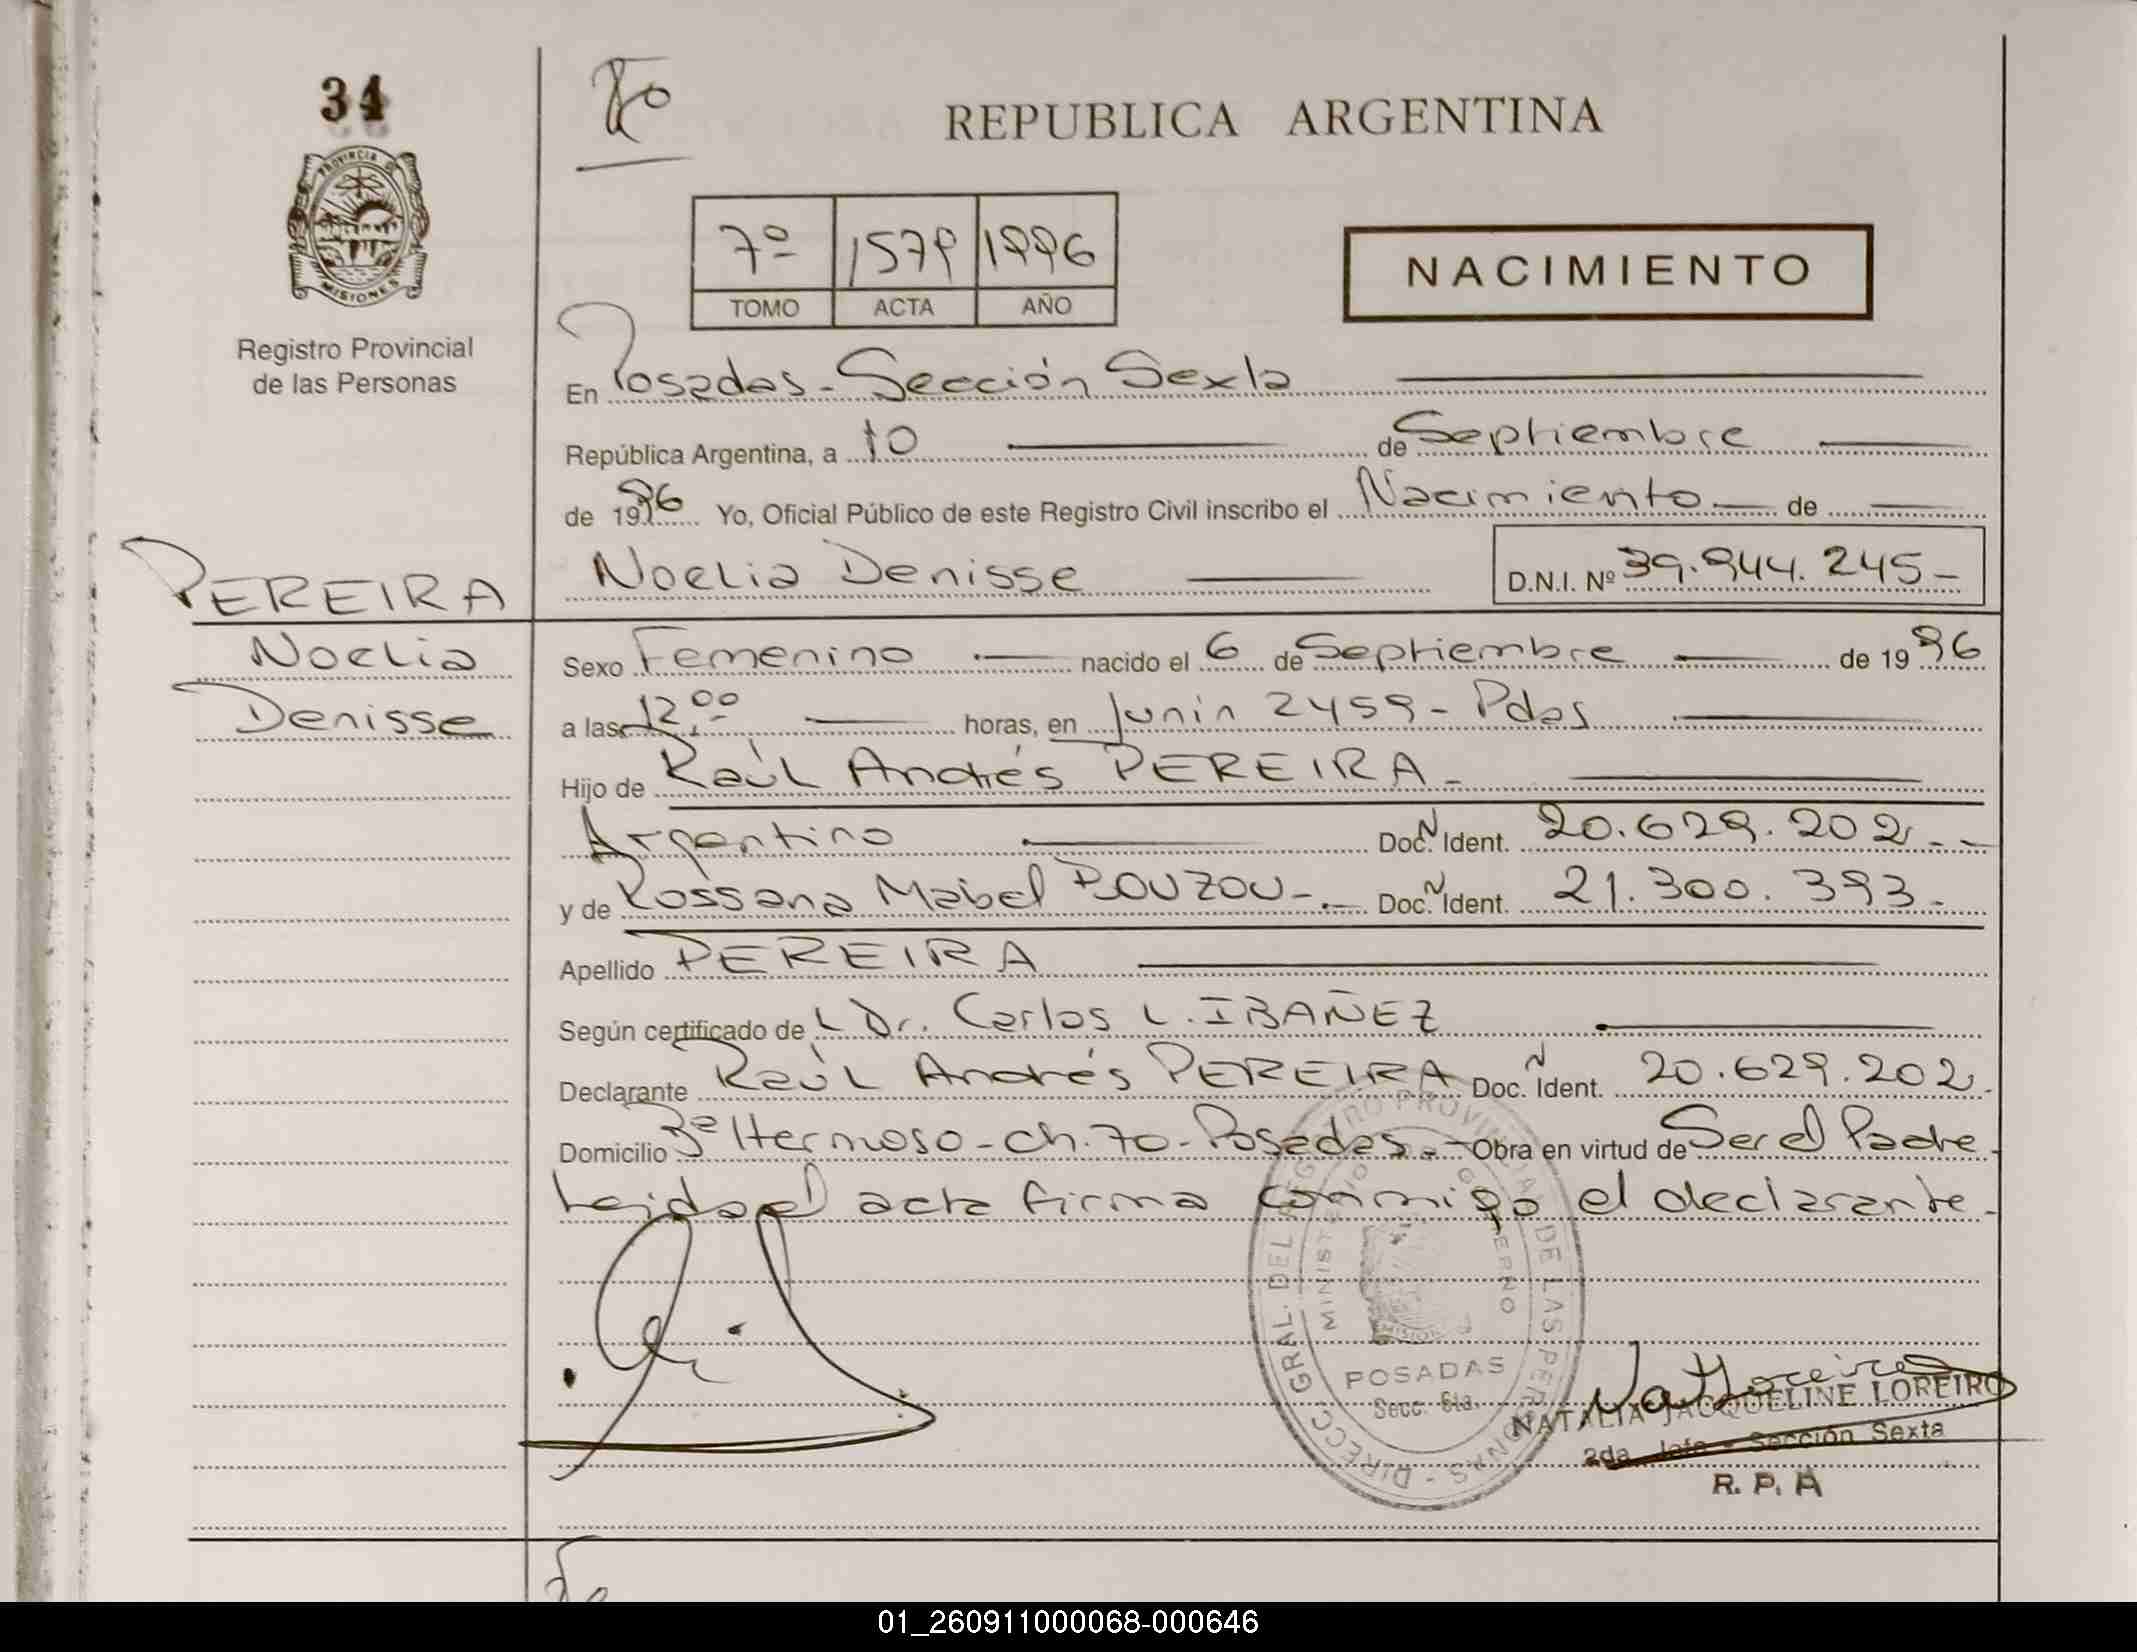 34
Fo
REPUBLICA ARGENTINA
PROVINCIA DE
MISIONES
Registro Provincial
de las Personas
7º 1579 1996
TOMO ACTA AÑO
NACIMIENTO
En Posadas - Sección Sexta
República Argentina, a 10 de Septiembre
de 1996 Yo, Oficial Público de este Registro Civil inscribo el Nacimiento de
PEREIRA Noelia Denisse D.N.I. Nº 39.944.245-
Noelia Sexo Femenino nacido el 6 de Septiembre de 1996
Denisse a las 12,00 horas, en Junin 2459 - Pdas
Hijo de Raúl Andrés PEREIRA -
Argentino Doc. N Ident. 20.629.202 - -
y de Rossana Mabel BOUZOU - Doc. N Ident. 21.300.393 -
Apellido PEREIRA
Según certificado de Dr. Carlos L. IBAÑEZ
Declarante Raúl Andrés PEREIRA Doc. N Ident. 20.629.202.
Domicilio Bº Hermoso - ch. 70 - Posadas - Obra en virtud de Ser el Padre -
Leida el acta firma conmigo el declarante -
DIRECC. GRAL. DEL REGISTRO PROVINCIAL DE LAS PERSONAS -
MINISTERIO GOBIERNO
MISIONES
POSADAS
Secc. 6ta.
NATALIA JACQUELINE LOREIRO
2da. Jefe - Sección Sexta
R. P. A
01_260911000068-000646